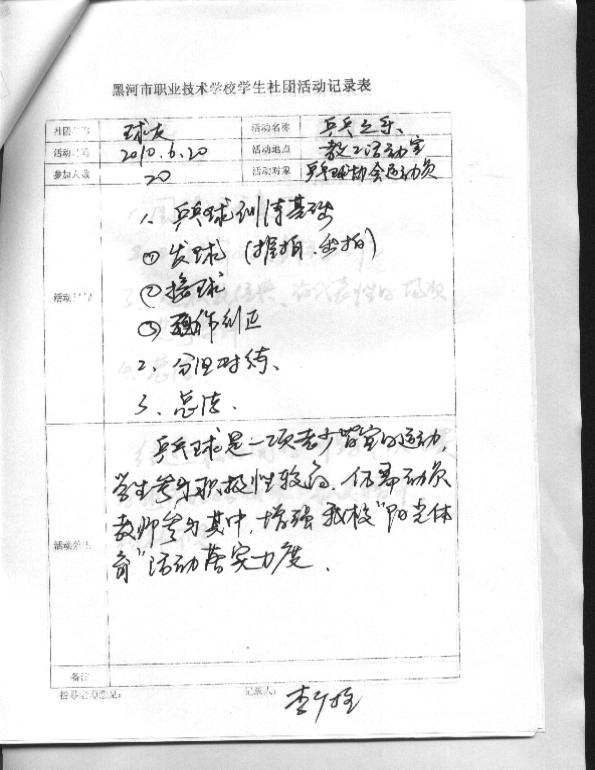 黑河市职业技术学校学生社团活动记录表
社团名称 球友 活动名称 乒乓之乐
活动时间 2010.6.20 活动地点 教工活动室
参加人数 20 活动对象 乒乓球协会运动员
活动
1、乒乓球训练基础
① 发球 (握拍、
② 接球
③ 动作纠正
2、分组对练、
3、总结.
乒乓球是一项老少皆宜的运动,
学生参与积极性较高, 仍需动员
教师参与其中, 增强我校"阳光体
育"活动落实力度.
活动
备注
指导老师意见: 记录人: